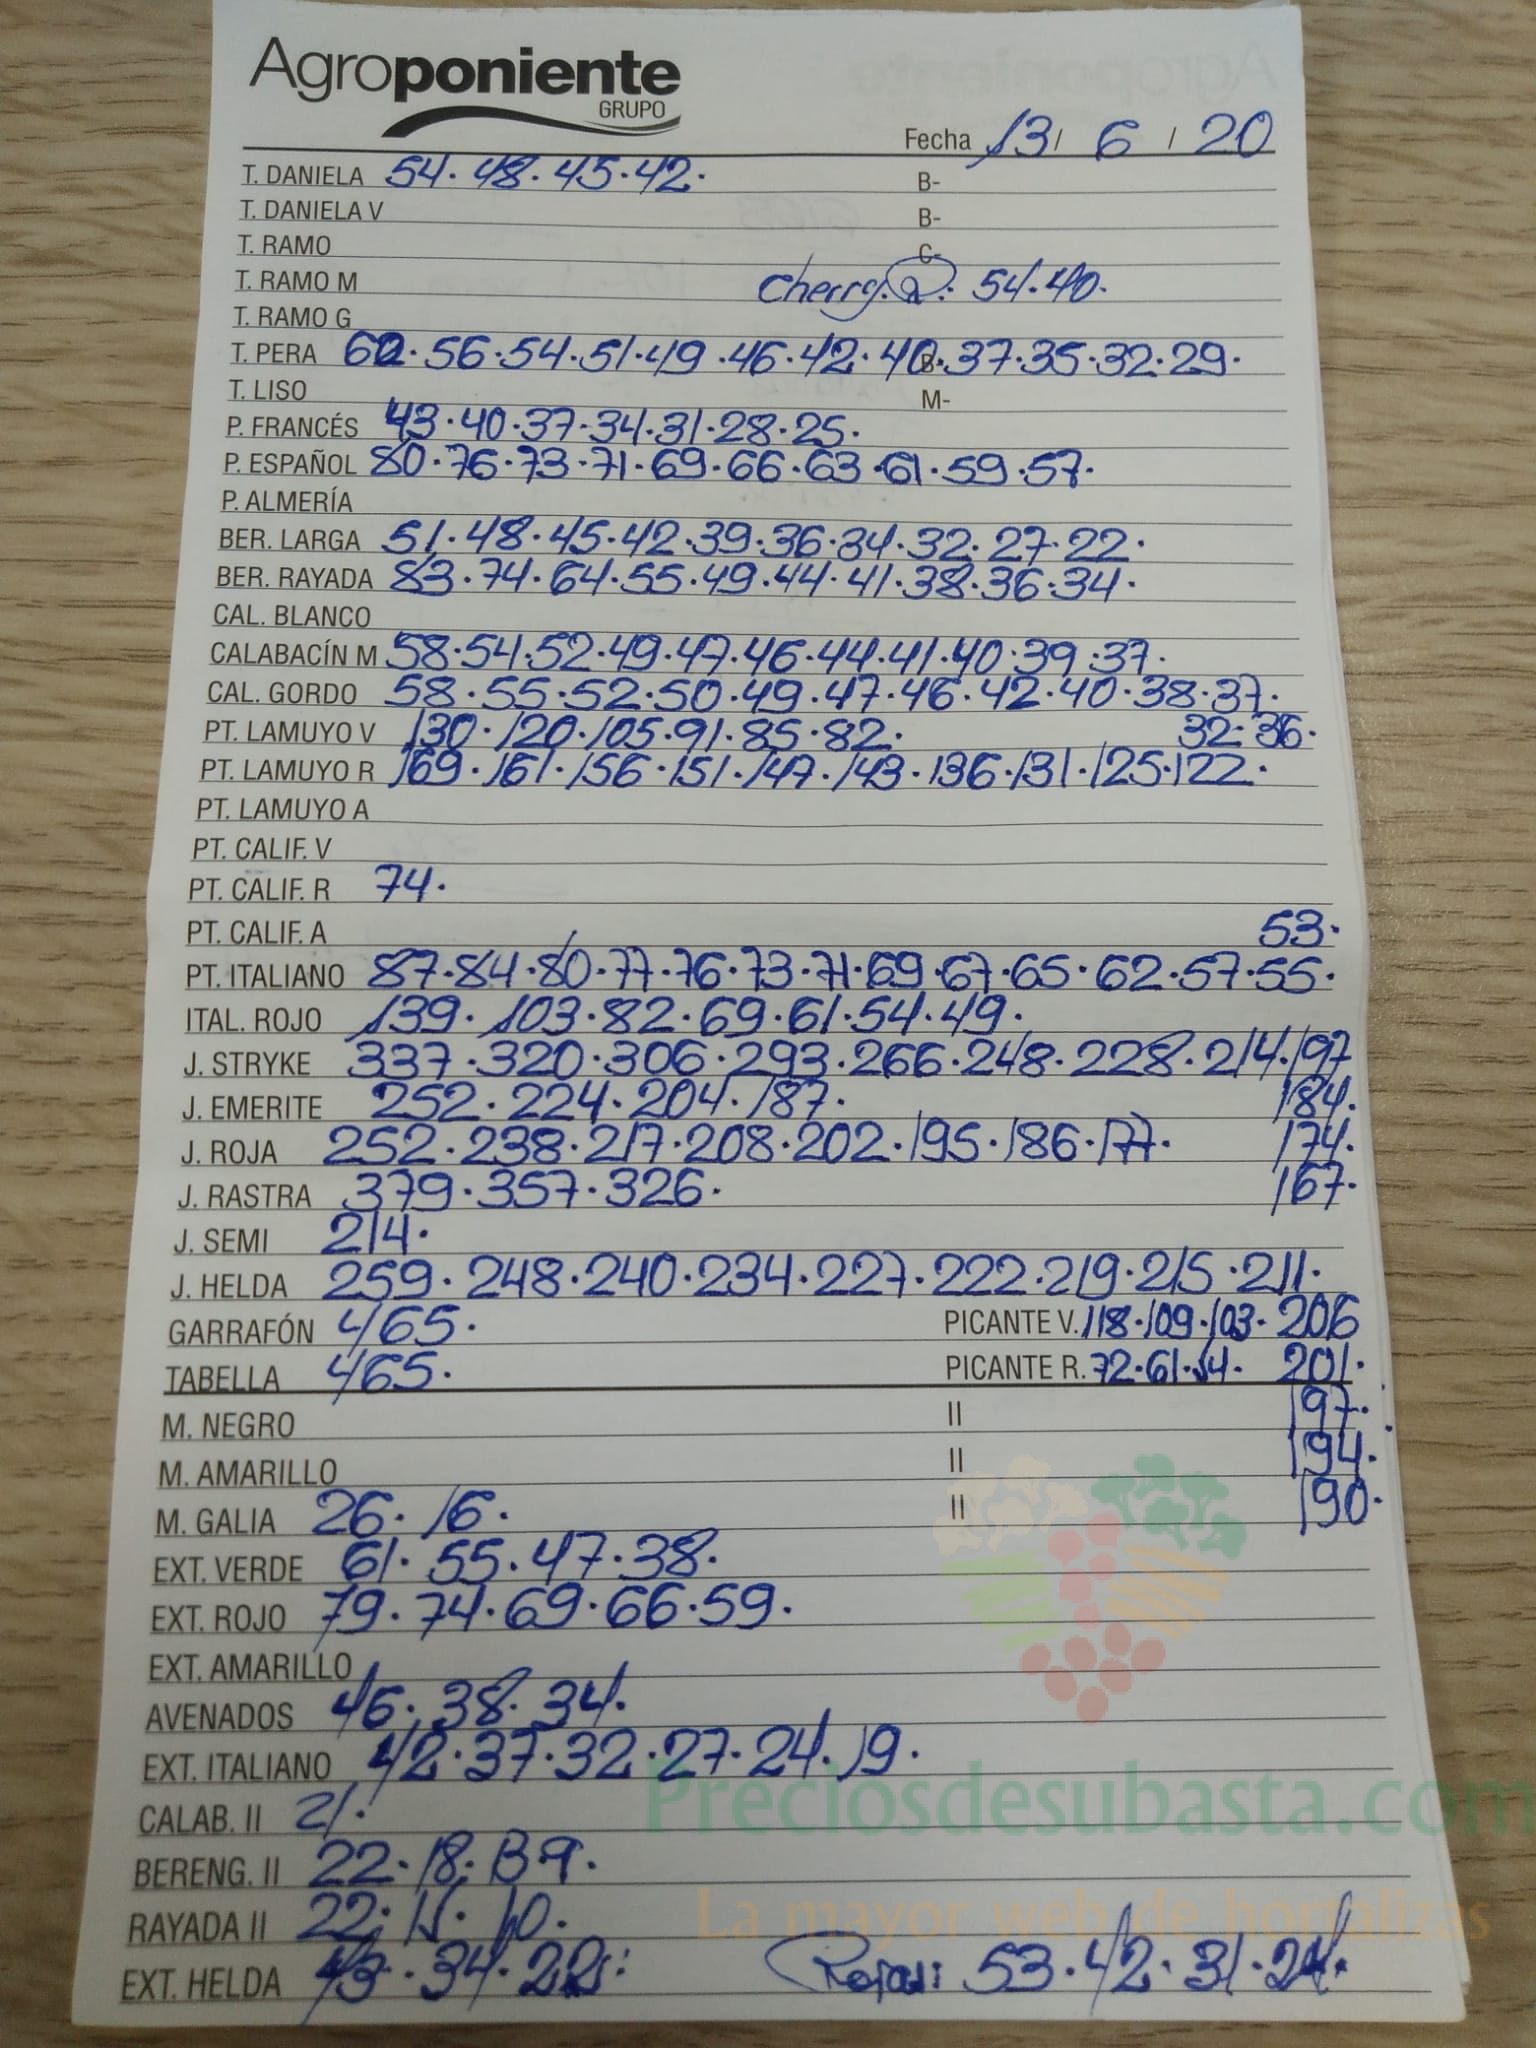 Agroponiente
GRUPO
Fecha 13/ 6 / 20
T. DANIELA 54. 48. 45. 42. B-
T. DANIELA V B-
T. RAMO C-
T. RAMO M Cherry. 54. 40.
T. RAMO G
T. PERA 56. 54. 51. 49. 46. 42. 40. B- 37. 35. 32. 29.
T. LISO M-
P. FRANCÉS 43. 40. 37. 34. 31. 28. 25.
P. ESPAÑOL 80. 76. 73. 71. 69. 66. 63. 61. 59. 57.
P. ALMERÍA
BER. LARGA 51. 48. 45. 42. 39. 36. 34. 32. 27. 22.
BER. RAYADA 83. 74. 64. 55. 49. 44. 41. 38. 36. 34.
CAL. BLANCO
CALABACÍN M 58. 54. 52. 49. 47. 46. 44. 41. 40. 39. 37.
CAL. GORDO 58. 55. 52. 50. 49. 47. 46. 42. 40. 38. 37.
PT. LAMUYO V 130. 120. 105. 91. 85. 82. 32. 36.
PT. LAMUYO R 169. 161. 156. 151. 147. 143. 136. 131. 125. 122.
PT. LAMUYO A
PT. CALIF. V
PT. CALIF. R 74.
PT. CALIF. A 53.
PT. ITALIANO 87. 84. 80. 77. 76. 73. 71. 69. 67. 65. 62. 57. 55.
ITAL. ROJO 139. 103. 82. 69. 61. 54. 49.
J. STRYKE 337. 320. 306. 293. 266. 248. 228. 214. 197
J. EMERITE 252. 224. 204. 187. 184.
J. ROJA 252. 238. 217. 208. 202. 195. 186. 177. 174.
J. RASTRA 379. 357. 326. 167.
J. SEMI 214.
J. HELDA 259. 248. 240. 234. 227. 222. 219. 215. 211.
GARRAFÓN 465. PICANTE V. 118. 109. 103. 206
TABELLA 465. PICANTE R. 72. 61. 54. 201.
M. NEGRO II 197.
M. AMARILLO II 194.
M. GALIA 26. 16. II 190.
EXT. VERDE 61. 55. 47. 38.
EXT. ROJO 79. 74. 69. 66. 59.
EXT. AMARILLO
AVENADOS 46. 38. 34.
EXT. ITALIANO 42. 37. 32. 27. 24. 19.
Preciosdesubasta.com
CALAB. II 21.
BERENG. II 22. 18. 13 9.
La mayor web de hortalizas
RAYADA II 22. 15. 10.
EXT. HELDA 43. 34. Rojas: 53. 42. 31. 24.